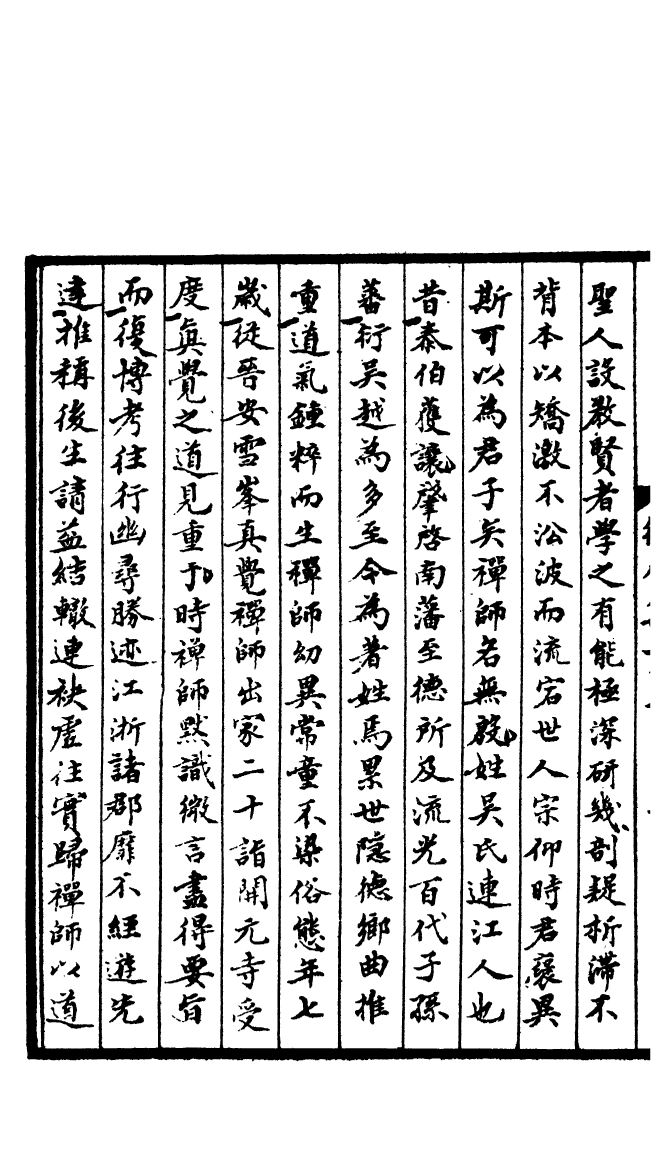 聖人設教賢者學之有能極深研幾剖疑析滯不
背本以矯激不㳂波而流宕世人宗仰時君襃異
斯可以為君子矣禪師名無殷姓吳氏連江人也
昔泰伯䕶讓肇啓南藩至德所及流光百代子孫
蕃衍吳越為多至今為著姓焉累世隱德鄉曲推
重道氣鍾粹而生禪師幼異常童不染俗態年七
歲從晉安雪峯真覺禪師出家二十詣開元寺受
度真覺之道見重于時禪師默識微言盡得要旨
而復博考往行幽尋勝迹江浙諸郡靡不經遊先
達推稱後生請益結轍連袂虛往實歸禪師以道